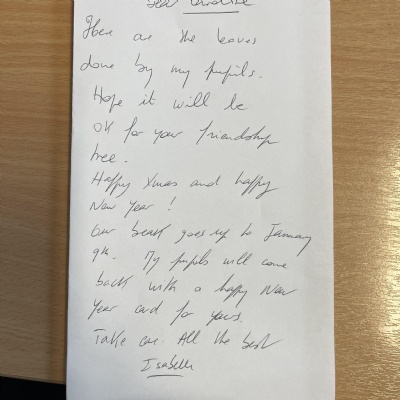 Dear Caroline
Here are the leaves
done by my pupils.
Hope it will be
OK for your friendship
tree.
Happy Xmas and happy
New Year !
Our break goes up to January
9th. My pupils will come
back with a happy New
Year card for yours.
Take care. All the best
Isabelle